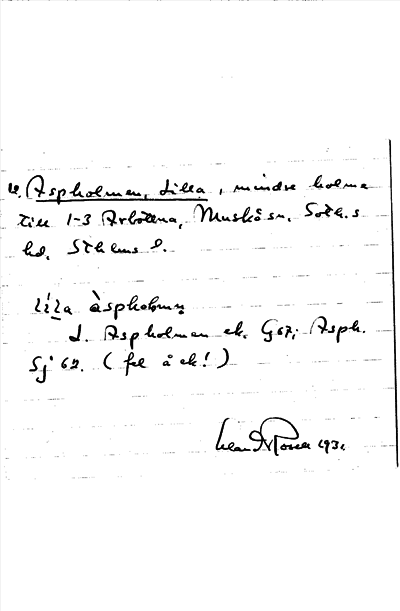 Aspholmen, Lilla, mindre holme
till 1-3 Arbottna, Muskö sn. Soth.s
hd. Sthlms l.
lílla àspholmən
L. Aspholmen ek. G 67; Asph.
Sj 62. (fel å ek!)
1931